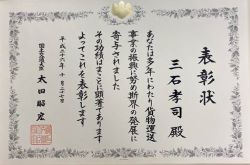 表彰状
三石孝司殿
あなたは多年にわたり貨物運送
事業の振興に努め斯界の発展に
寄与されました
その功績はまことに顕著であります
よってこれを表彰します
平成二十六年十月二十七日
国土交通大臣
太田昭宏